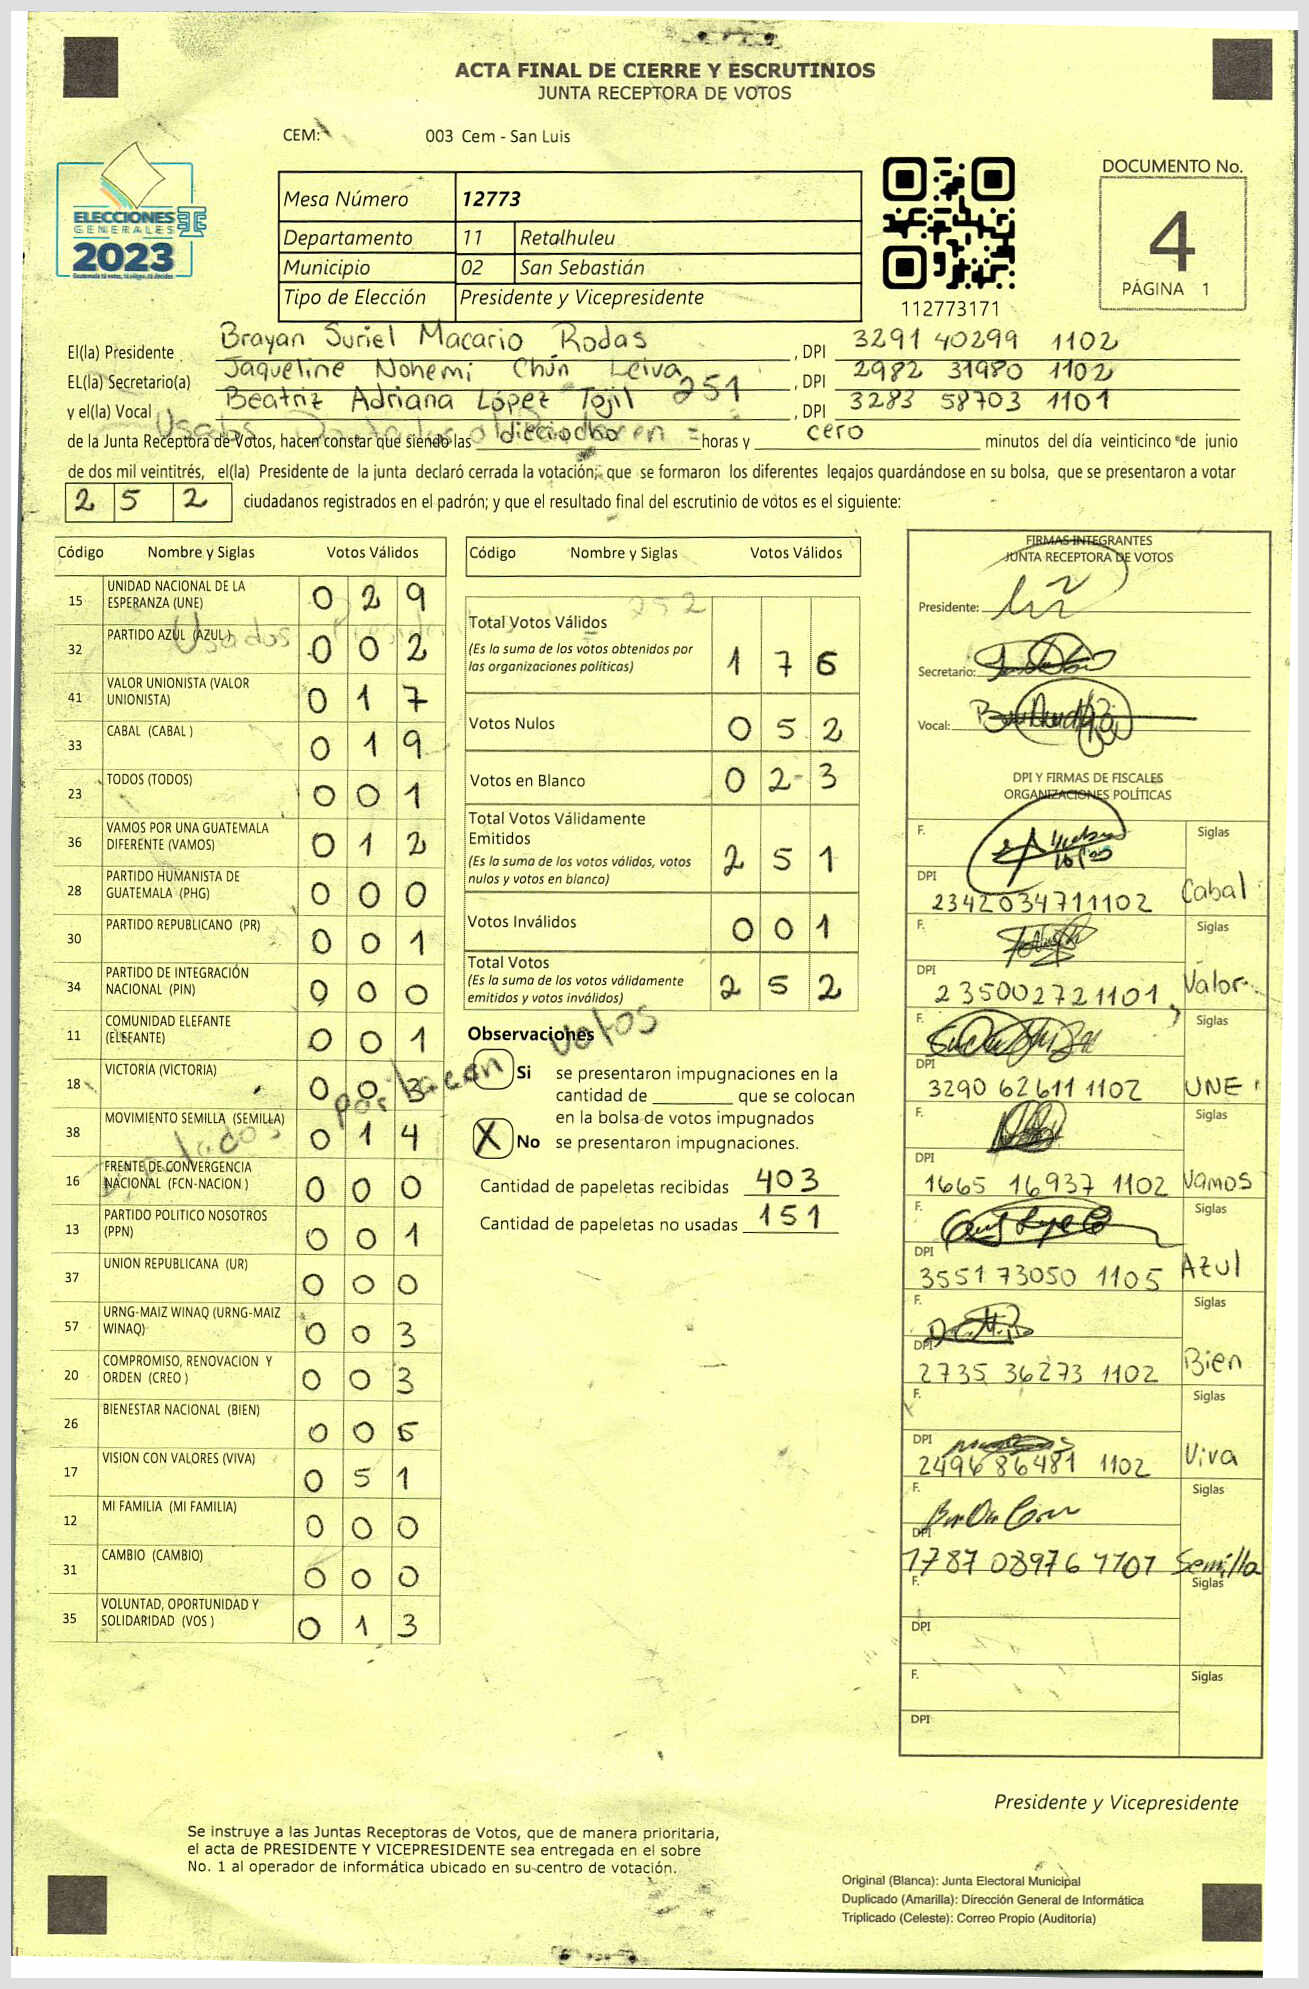 ACTA FINAL DE CIERRE Y ESCRUTINIOS
JUNTA RECEPTORA DE VOTOS
CEM: 003 Cem - San Luis
ELECCIONES
GENERALES
2023
Mesa Número 12773
Departamento 11 Retalhuleu
Municipio 02 San Sebastián
Tipo de Elección Presidente y Vicepresidente
112773171
DOCUMENTO No.
4
PÁGINA 1
El(la) Presidente Brayan Suriel Macario Rodas, DPI 3291 40299 1102
EL(la) Secretario(a) Jaqueline Nohemi Chún Leiva, DPI 2982 31980 1102
y el(la) Vocal Beatriz Adriana López Tojil 251, DPI 3283 58703 1101
Usados
de la Junta Receptora de Votos, hacen constar que siendo las dieciocho horas y cero minutos del día veinticinco de junio
de dos mil veintitrés, el(la) Presidente de la junta declaró cerrada la votación; que se formaron los diferentes legajos guardándose en su bolsa, que se presentaron a votar
252 ciudadanos registrados en el padrón; y que el resultado final del escrutinio de votos es el siguiente:
Código Nombre y Siglas Votos Válidos
15 UNIDAD NACIONAL DE LA ESPERANZA (UNE) 0 2 9
32 PARTIDO AZUL (AZUL) 0 0 2
41 VALOR UNIONISTA (VALOR UNIONISTA) 0 1 7
33 CABAL (CABAL ) 0 1 9
23 TODOS (TODOS) 0 0 1
36 VAMOS POR UNA GUATEMALA DIFERENTE (VAMOS) 0 1 2
28 PARTIDO HUMANISTA DE GUATEMALA (PHG) 0 0 0
30 PARTIDO REPUBLICANO (PR) 0 0 1
34 PARTIDO DE INTEGRACIÓN NACIONAL (PIN) 0 0 0
11 COMUNIDAD ELEFANTE (ELEFANTE) 0 0 1
18 VICTORIA (VICTORIA) 0 0 3
38 MOVIMIENTO SEMILLA (SEMILLA) 0 1 4
16 FRENTE DE CONVERGENCIA NACIONAL (FCN-NACION ) 0 0 0
13 PARTIDO POLITICO NOSOTROS (PPN) 0 0 1
37 UNION REPUBLICANA (UR) 0 0 0
57 URNG-MAIZ WINAQ (URNG-MAIZ WINAQ) 0 0 3
20 COMPROMISO, RENOVACION Y ORDEN (CREO ) 0 0 3
26 BIENESTAR NACIONAL (BIEN) 0 0 6
17 VISION CON VALORES (VIVA) 0 5 1
12 MI FAMILIA (MI FAMILIA) 0 0 0
31 CAMBIO (CAMBIO) 0 0 0
35 VOLUNTAD, OPORTUNIDAD Y SOLIDARIDAD (VOS ) 0 1 3
Usados
252
votos
Código Nombre y Siglas Votos Válidos
Total Votos Válidos 1 7 6
(Es la suma de los votos obtenidos por
las organizaciones políticas)
Votos Nulos 0 5 2
Votos en Blanco 0 2 3
Total Votos Válidamente
Emitidos 2 5 1
(Es la suma de los votos válidos, votos
nulos y votos en blanco)
Votos Inválidos 0 0 1
Total Votos 2 5 2
(Es la suma de los votos válidamente
emitidos y votos inválidos)
Observaciones
Si se presentaron impugnaciones en la
cantidad de ________ que se colocan
en la bolsa de votos impugnados
X No se presentaron impugnaciones.
Cantidad de papeletas recibidas 403
Cantidad de papeletas no usadas 151
FIRMAS INTEGRANTES
JUNTA RECEPTORA DE VOTOS
Presidente:
Secretario:
Vocal:
DPI Y FIRMAS DE FISCALES
ORGANIZACIONES POLÍTICAS
F. Siglas
DPI 2342034711102 Cabal
F. Siglas
DPI 235002721101 Valor
F. Siglas
DPI 3290 62611 1102 UNE
F. Siglas
DPI 1665 16937 1102 Vamos
F. Siglas
DPI 3551 73050 1105 Azul
F. Siglas
DPI 2735 36273 1102 Bien
F. Siglas
DPI 2496 86481 1102 Viva
F. Siglas
DPI 1787 08976 1101 Semilla
F. Siglas
DPI
F. Siglas
DPI
Presidente y Vicepresidente
Se instruye a las Juntas Receptoras de Votos, que de manera prioritaria,
el acta de PRESIDENTE Y VICEPRESIDENTE sea entregada en el sobre
No. 1 al operador de informática ubicado en su centro de votación.
Original (Blanca): Junta Electoral Municipal
Duplicado (Amarilla): Dirección General de Informática
Triplicado (Celeste): Correo Propio (Auditoria)